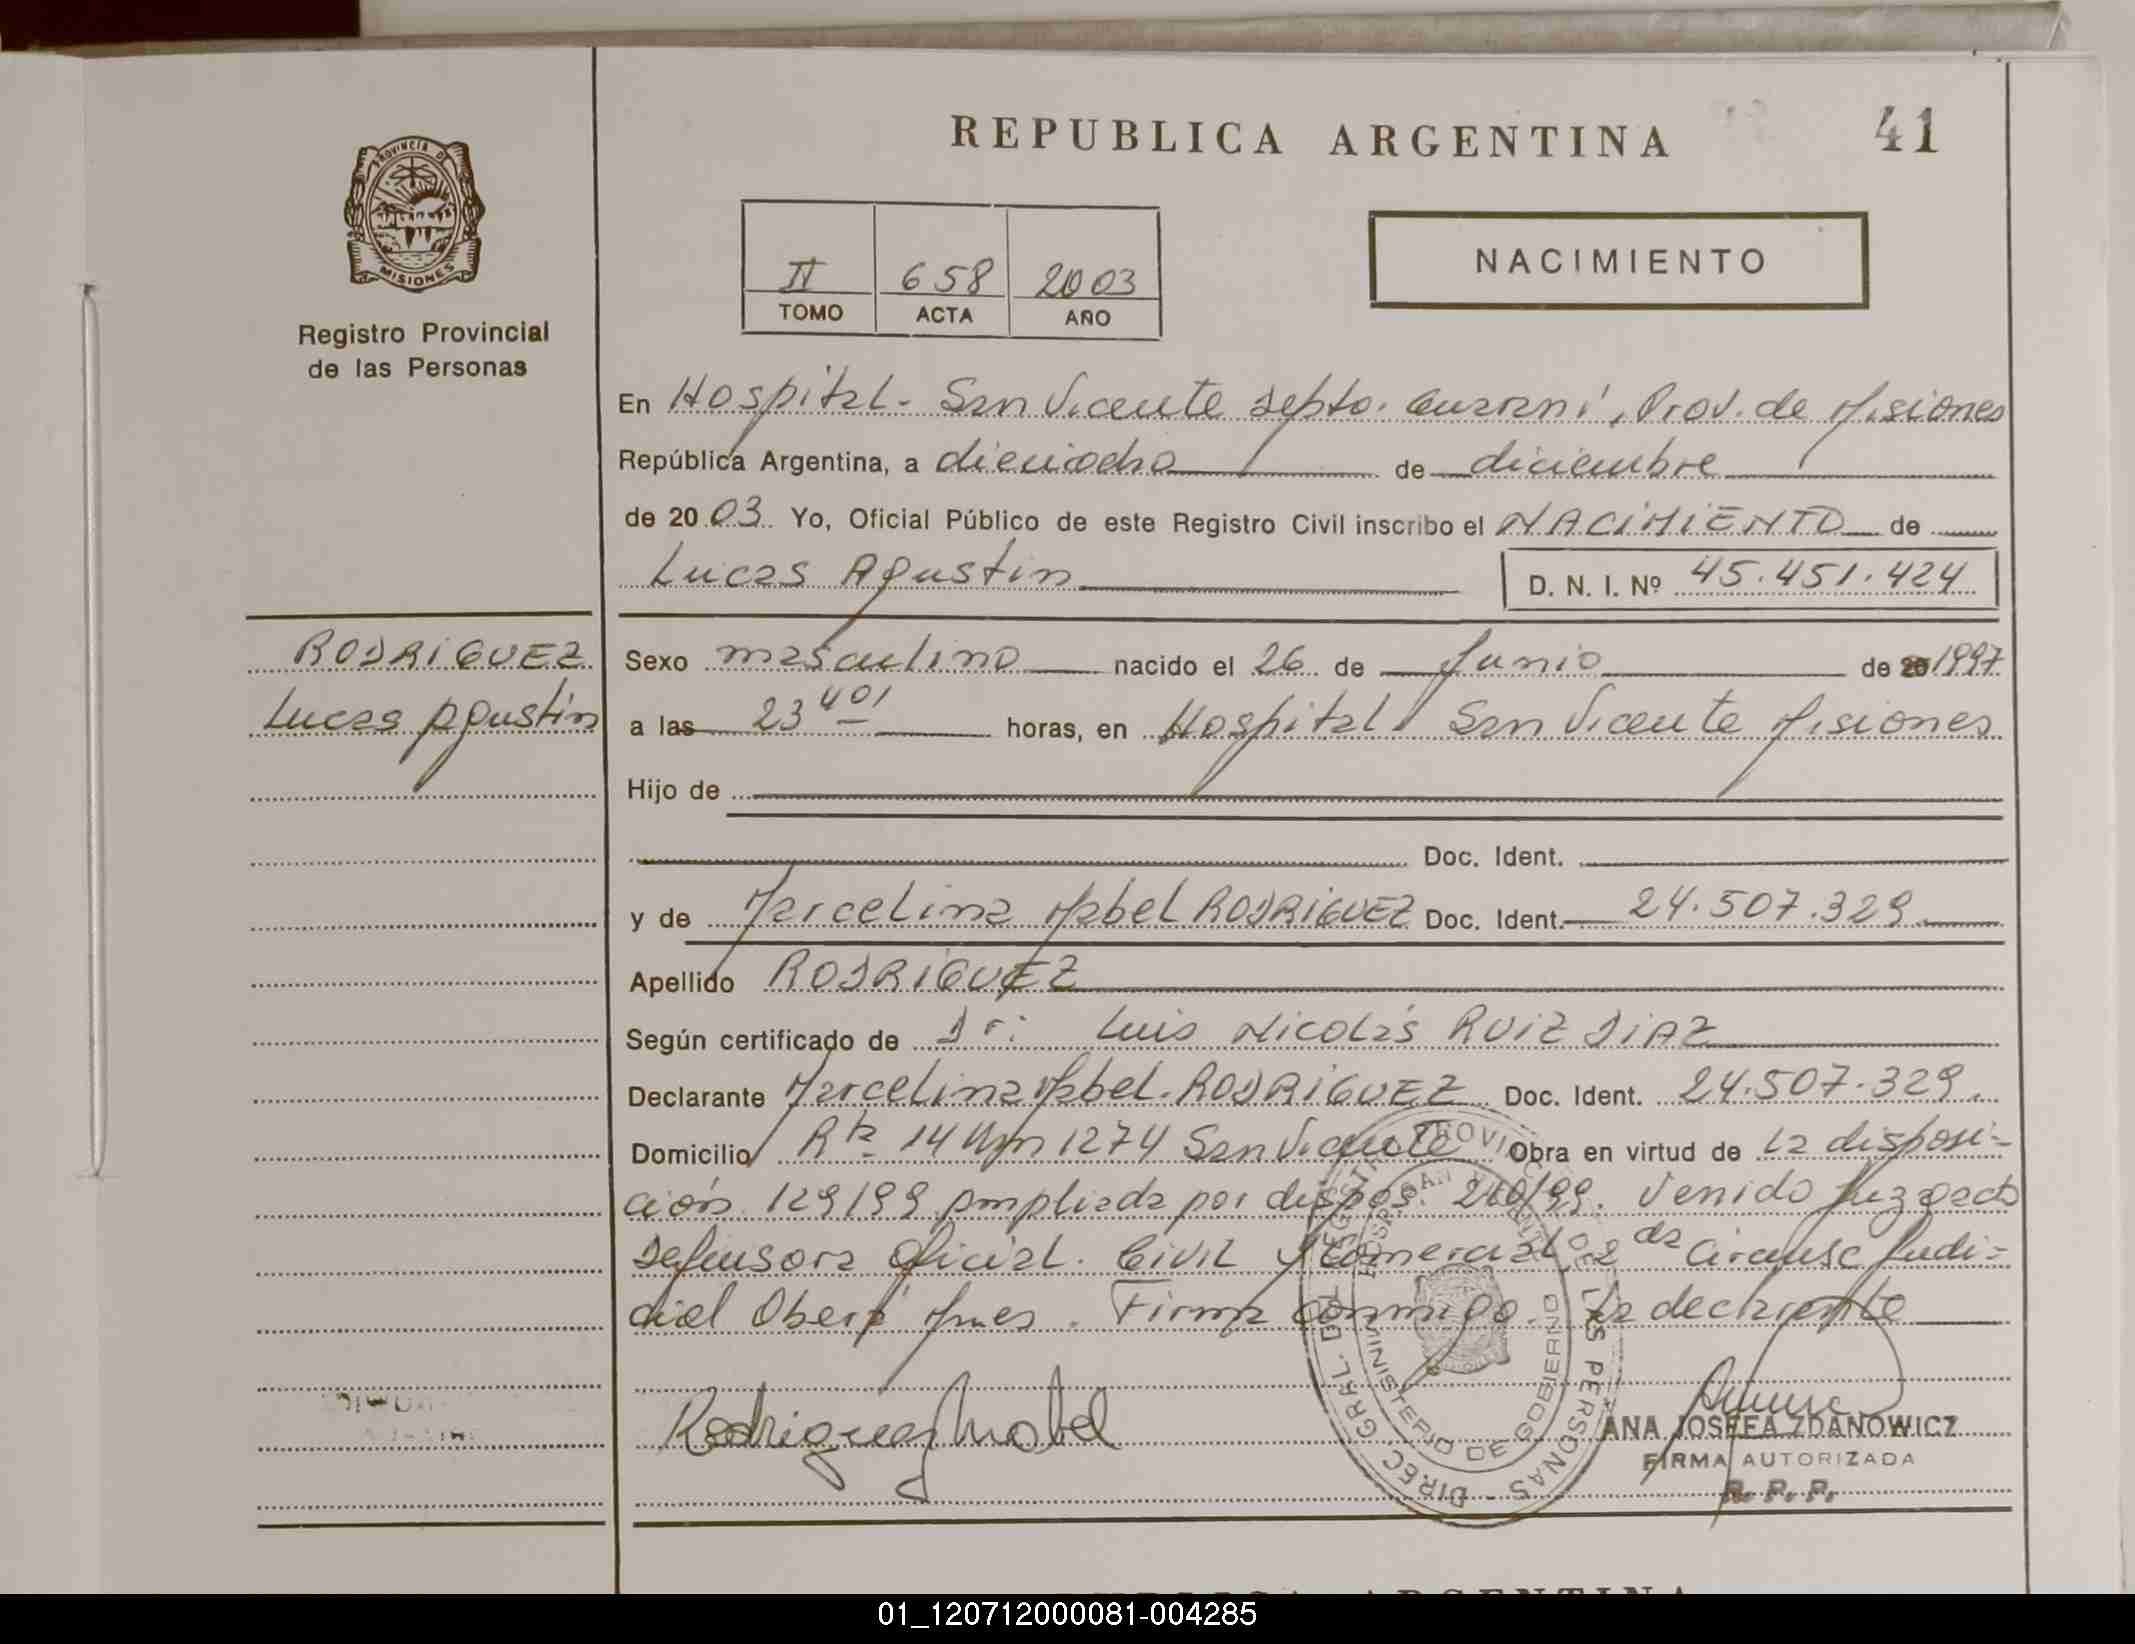 REPUBLICA ARGENTINA
41
PROVINCIA DE
MISIONES
Registro Provincial
de las Personas
II 658 2003
TOMO ACTA AÑO
NACIMIENTO
En Hospital - San Vicente Depto. Guaraní, Prov. de Misiones
República Argentina, a dieciocho de diciembre
de 2003 Yo, Oficial Público de este Registro Civil inscribo el NACIMIENTO de
Lucas Agustin D. N. I. Nº 45.451.424
RODRIGUEZ
Lucas Agustin
Sexo masculino nacido el 26 de Junio de 20 1997
a las 23 horas, en Hospital San Vicente Misiones
Hijo de
Doc. Ident.
y de Marcelina Mabel RODRIGUEZ Doc. Ident. 24.507.329
Apellido RODRIGUEZ
Según certificado de Dr: Luis Nicolás RUIZ DIAZ
Declarante Marcelina Mabel. RODRIGUEZ Doc. Ident. 24.507.329.
Domicilio Rta 14 Km 1274 San Vicente Obra en virtud de la disposi-
ción 129/99 ampliada por dispos. 260/99. Venido Juzgado
Defensora Oficial. Civil y Comercial, 2da Circunsc Judi-
cial Oberá Mnes. Firma conmigo. La declarante
Rodriguez Mabel
DIREC GRAL. DEL REGISTRO PROVINCIAL DE LAS PERSONAS
HOSP. SAN VICENTE
MINISTERIO DE GOBIERNO
ANA JOSEFA ZDANOWICZ
FIRMA AUTORIZADA
R. P. P.
REPUBLICA ARGENTINA
01_120712000081-004285